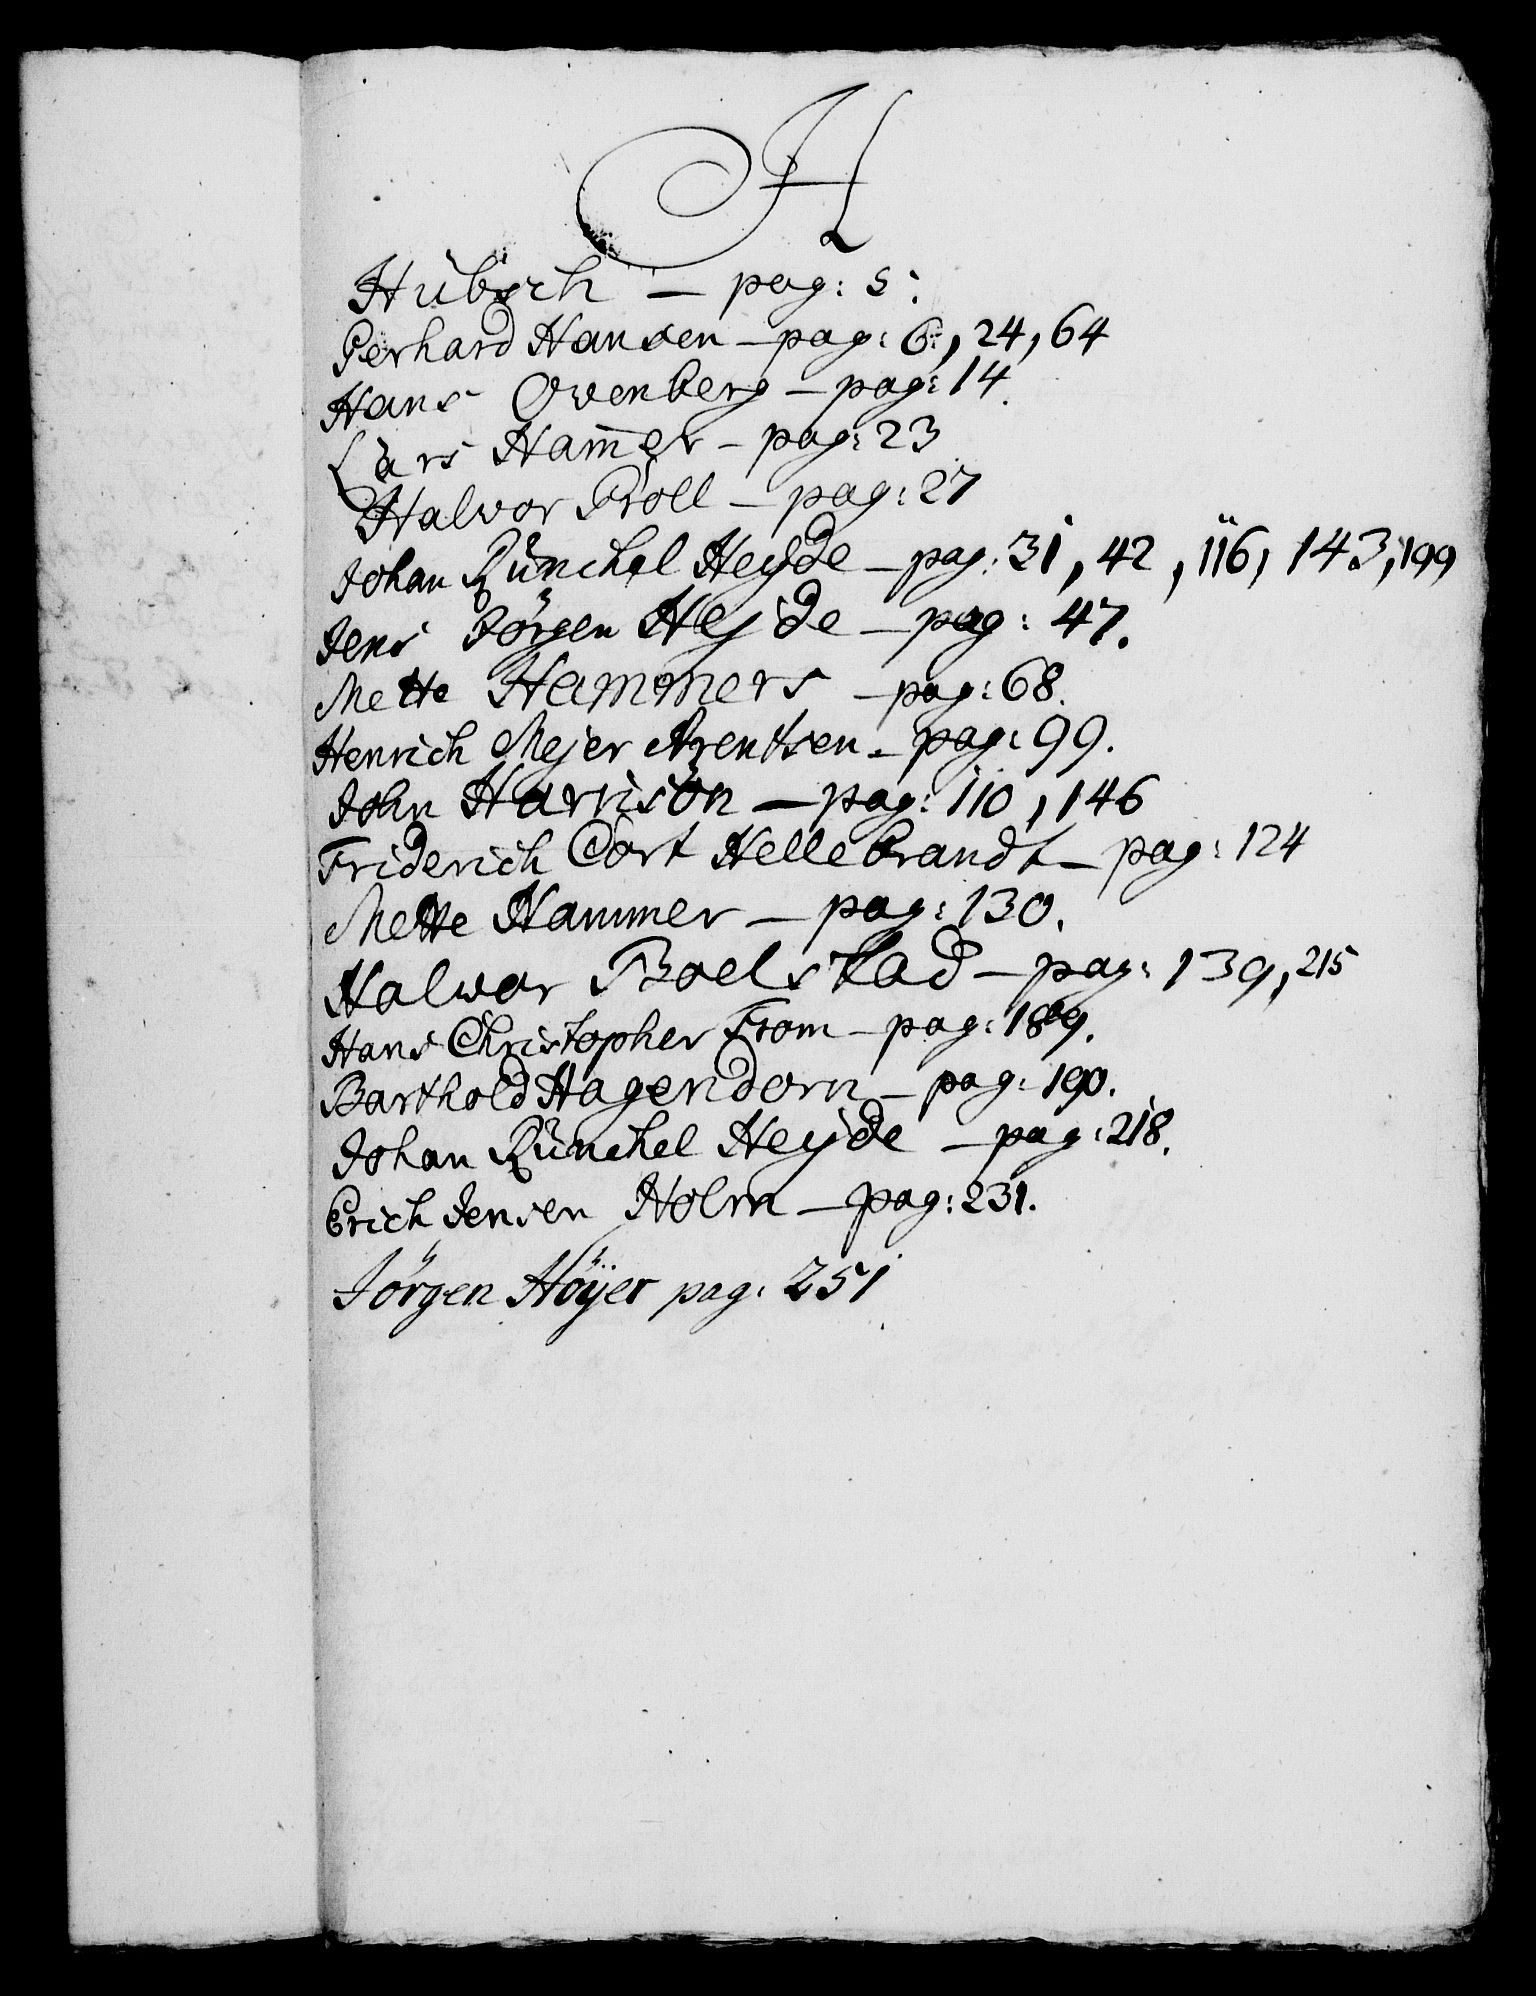 H
Hübsch — pag: 5:
Gerhard Hansen — pag: 6, 24, 64
Hans Ovenberg — pag: 14.
Lars Ham̄er — pag: 23
Halvor Proll — pag: 27
Johan Künchel Heyde — pag: 31, 42, 116, 143, 199
Jens Jörgen Hejde — pag: 47.
Mette Hammers — pag: 68.
Henrich Mejer Arentsen — pag: 99.
John Harrison — pag: 110, 146
Friderich Cort Hellebrandt — pag: 124
Mette Hammer — pag: 130.
Halwor Boelstad — pag: 139, 215
Hans Christopher From — pag: 189.
Barthold Hagendorn — pag: 190.
Johan Künchel Heyde — pag: 218.
Erich Jensen Holm — pag: 231.
Jörgen Höÿer pag: 251